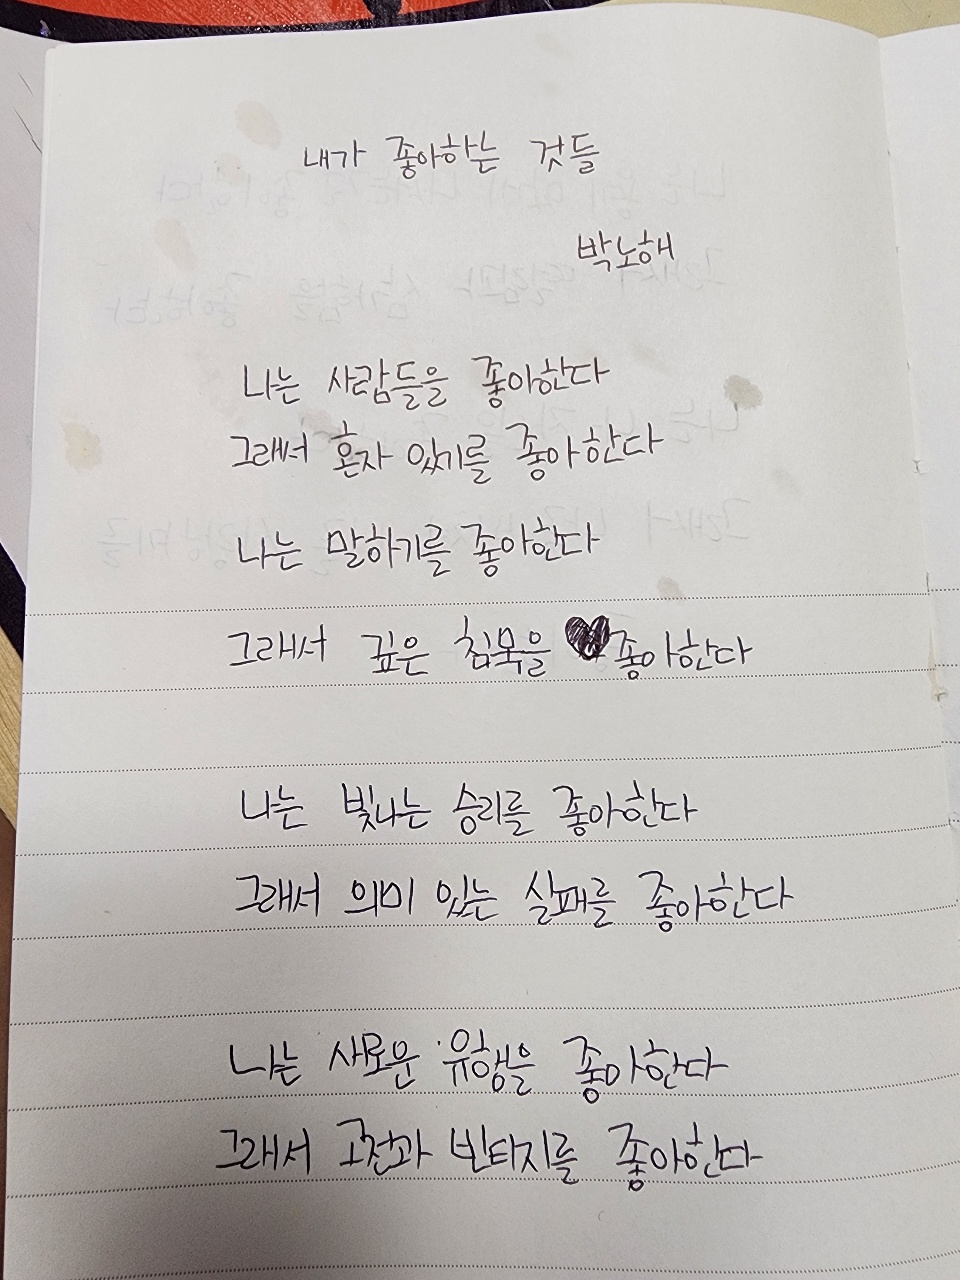 내가 좋아하는 것들
박노해
나는 사람들을 좋아한다
그래서 혼자 있기를 좋아한다
나는 말하기를 좋아한다
그래서 깊은 침묵을 좋아한다
나는 빛나는 승리를 좋아한다
그래서 의미 있는 실패를 좋아한다
나는 새로운 유행을 좋아한다
그래서 고전과 빈티지를 좋아한다